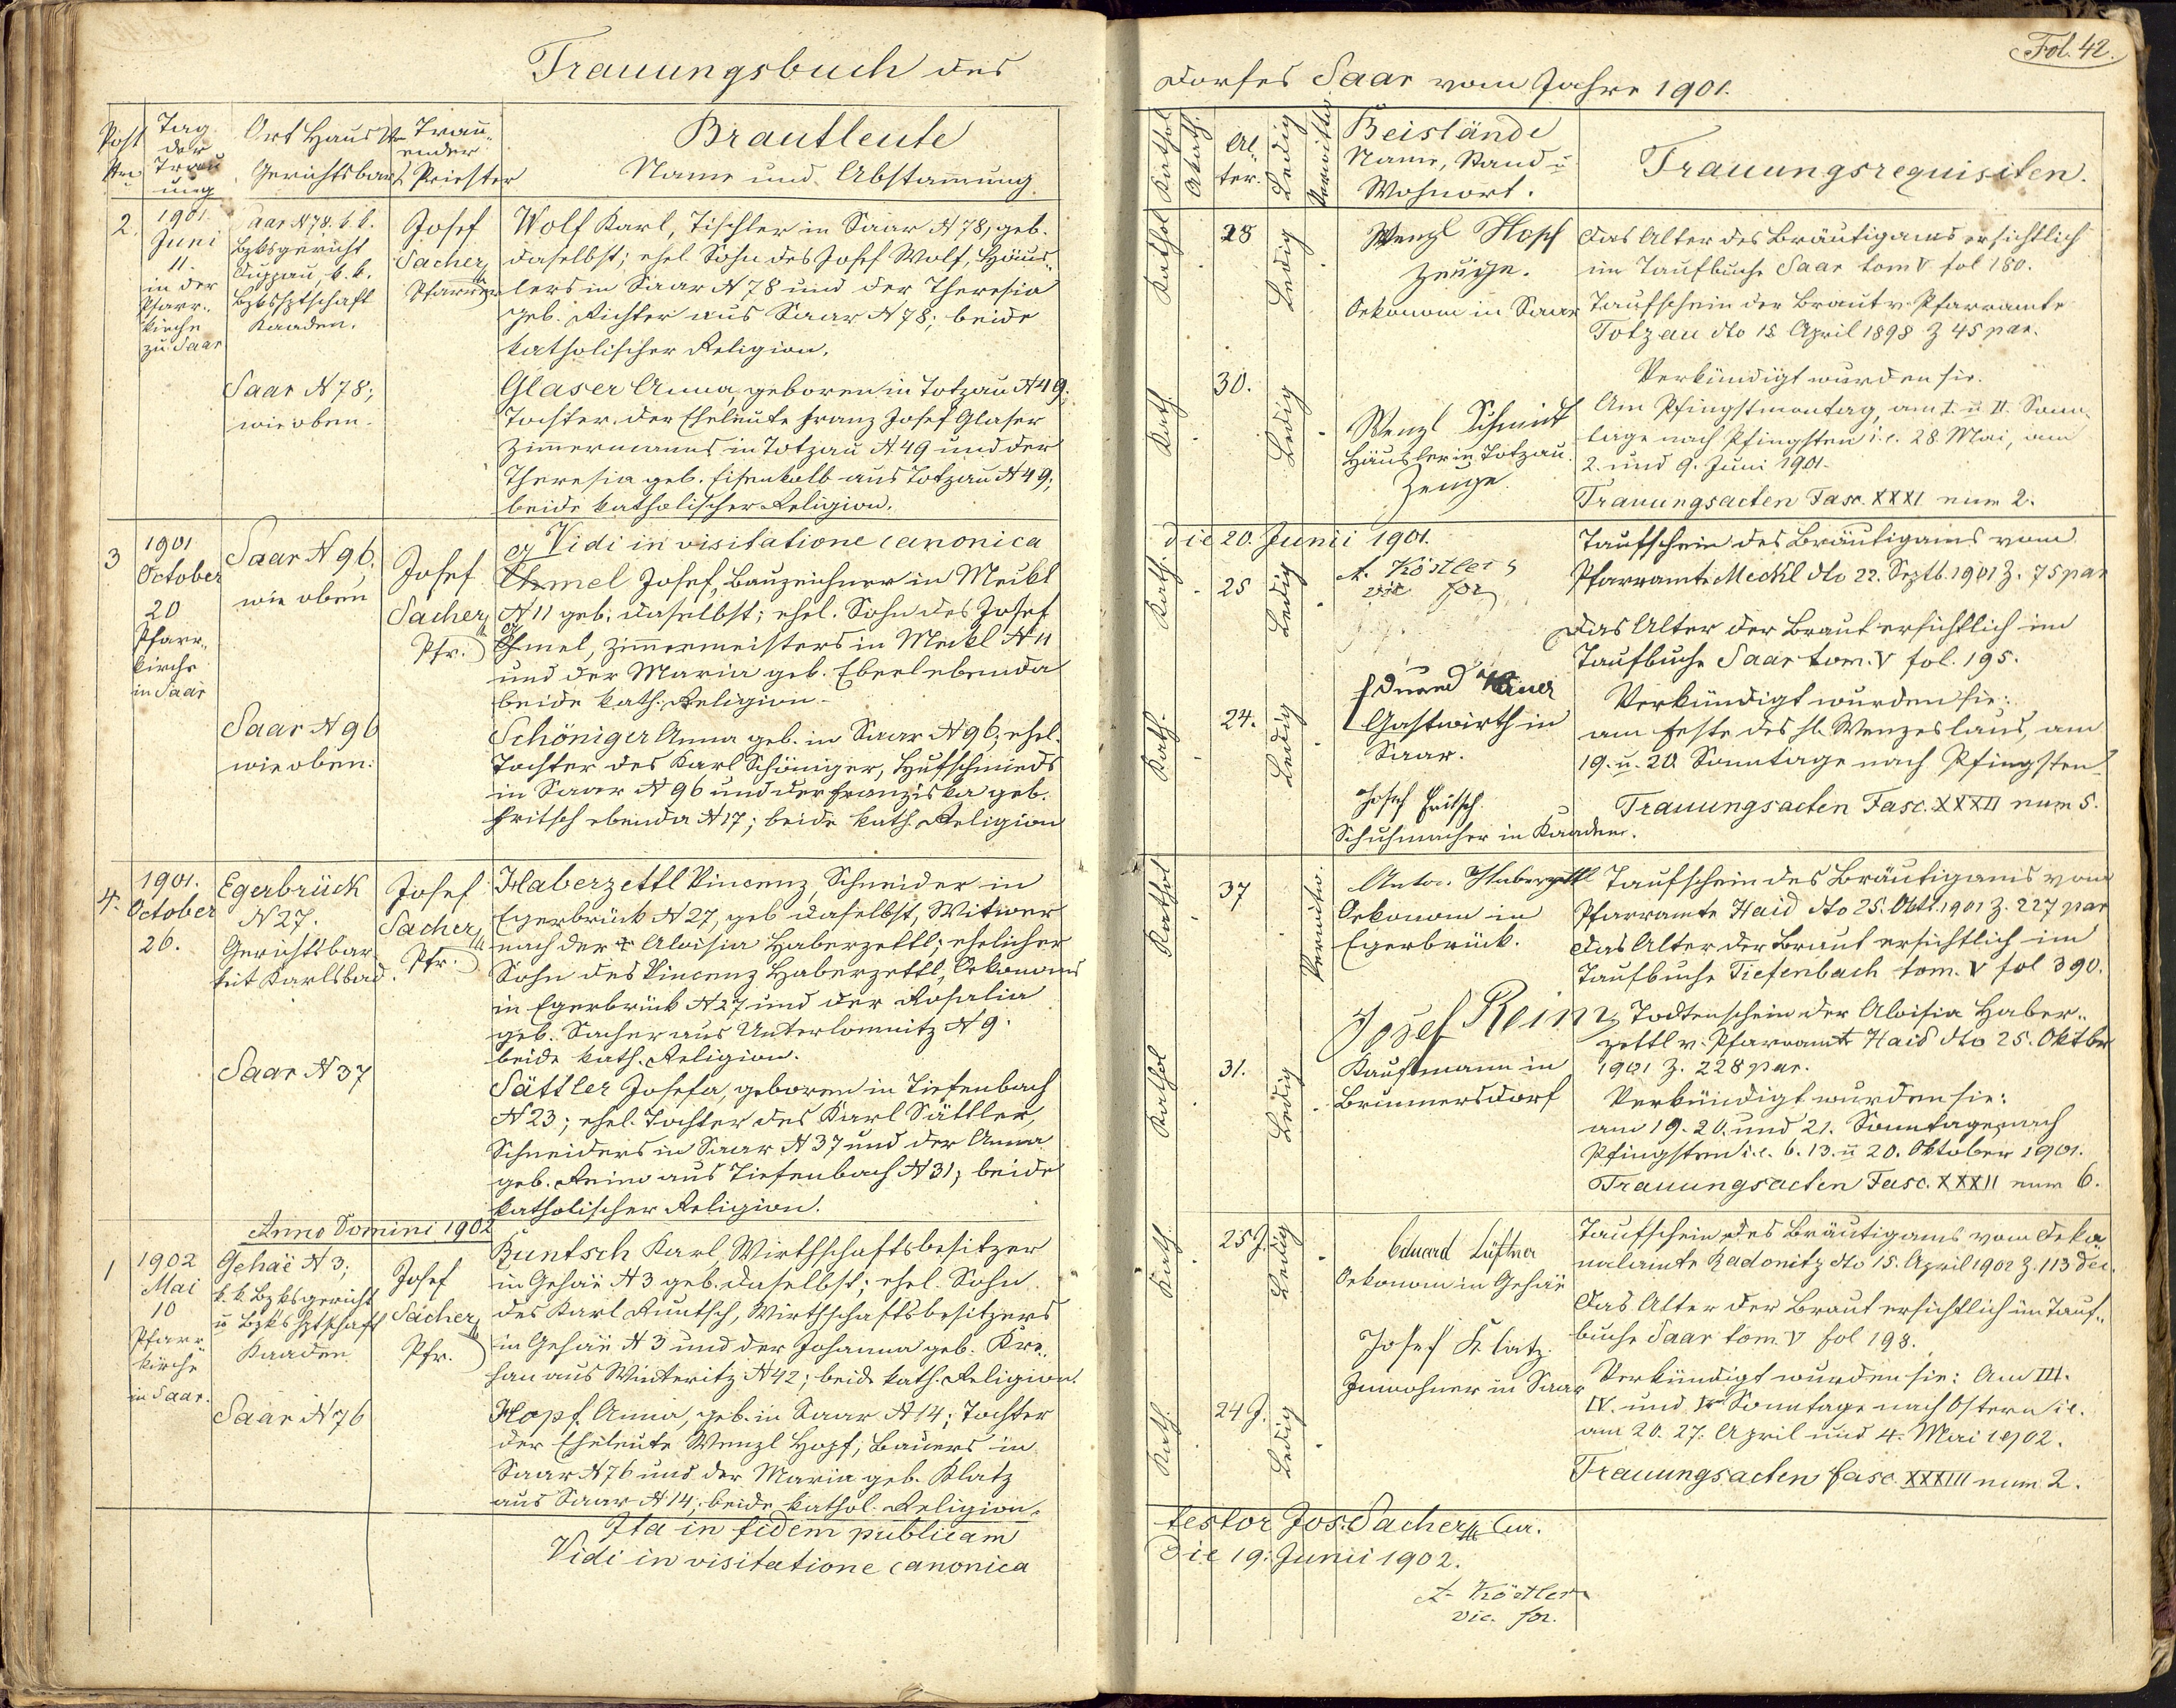 Trauungsbuch des
Post Nru
Tag der Trauung
Ort Haus Nr Gerichtsbark.
Trauender Priester
Brautleute
Name und Abstammung.
2.
1901.
Juni
11.
in der
Pfarr-
kirche
zu Saar
Saar N 78. k.k.
Bzksgericht
Duppau, k.k.
Bzkshptschaft
Kaaden.
Josef
Sacher
Pfarrer
Wolf Karl, Tischler in Saar N 78, geb.
daselbst; ehel. Sohn des Josef Wolf, Häus-
lers in Saar N 78 und der Theresia
geb. Richter aus Saar N 78; beide
katholischer Religion.
Saar N 78;
wie oben.
Glaser Anna, geboren in Totzau N 49;
Tochter der Eheleute Franz Josef Glaser
Zimmermanns in Totzau N. 49 und der
Theresia geb. Eisenkolb aus Totzau N 49;
beide katholischer Religion.
Vidi in visitatione canonica
3
1901
October
20
Pfarr-
kirche
in Saar
Saar N 96,
wie oben
Josef
Sacher
Pfr.
Chmel Josef, Bauzeichner in Meckl
N 11 geb. daselbst; ehel. Sohn des Josef
Chmel, Zimmermeisters in Meckl N 11
und der Maria geb. Eberl ebenda
beide kath. Religion.
Saar N 96
wie oben.
Schöniger Anna geb. in Saar N 96; ehel.
Tochter des Karl Schöniger, Hufschmieds
in Saar N 96 und der Franziska geb.
Fritsch ebenda N 17; beide kath. Religion
4.
1901.
October
26.
Egerbrück
N 27.
Gerichtsbar-
keit Karlsbad.
Josef
Sacher
Pfr.
Haberzettl Vincenz, Schneider in
Egerbrück N 27, geb daselbst, Witwer
nach der † Aloisia Haberzettl; ehelicher
Sohn des Vincenz Haberzettl, Oekonoms
in Egerbrück N 27 und der Rosalia
geb. Sacher aus Unterlomitz N 9.
beide kath. Religion.
Saar N 37
Sättler Josefa, geboren in Tiefenbach
N 23; ehel. Tochter des Karl Sättler,
Schneiders in Saar N 37 und der Anna
geb. Reim aus Tiefenbach N 31; beide
katholischer Religion.
Anno Domini 1902
1
1902
Mai
10
Pfarr-
kirche
in Saar.
Gehäe N 3;
k.k. Bzksgericht
u Bzkshptschaft
Kaaden
Josef
Sacher
Pfr.
Runtsch Karl, Wirthschaftsbesitzer
in Gehäe N 3 geb. daselbst; ehel. Sohn
des Karl Runtsch, Wirthschaftsbesitzers
in Gehäe N 3 und der Johanna geb. Kre-
han aus Winteritz N 42; beide kath. Religion.
Saar N 76
Hopf Anna, geb. in Saar N 14; Tochter
der Eheleute Wenzl Hopf, Bauers in
Saar N 76 und der Maria geb. Klatz
aus Saar N 14; beide kathol. Religion.
Ita in fidem publicam
Vidi in visitatione canonica
Fol. 42.
Dorfes Saar vom Jahre 1901.
Kathol
Akath.
Al-
ter.
Ledig
Verwittw
Beistände
Name, Stand u
Wohnort.
Trauungsrequisiten.
Kathol
28
Ledig
Wenzl Hopf
Zeuge.
Oekonom in Saar
Das Alter des Bräutigams ersichtlich
im Taufbuche Saar tom V fol 180.
Taufschein der Braut v. Pfarramte
Totzau dto 18 April 1898 Z 45 par.
Verkündigt wurden sie.
Kath.
30.
Ledig
Wenzl Schmidt
Häusler in Totzau.
Zeuge
Am Pfingstmontag, am I. u II. Sonn-
tage nach Pfingsten i.e. 28. Mai, am
2. und 9. Juni 1901.
Trauungsacten Fasc. XXXI num 2.
die 20. Junii 1901.
A. Köstler
vic for
Kath.
25
Ledig
Taufschein des Bräutigams vom
Pfarramte Meckl dto 22. Septb. 1901 Z. 75 par
Das Alter der Braut ersichtlich im
Taufbuche Saar tom. V fol. 195.
Kath.
24.
Ledig
Eduard
Gastwirth in
Saar.
Josef Fritsch
Schuhmacher in Kaaden.
Verkündigt wurden sie:
am Feste des hl. Wenzeslaus, am
19. u. 20 Sonntage nach Pfingsten
Trauungsacten Fasc. XXXII num 5.
Kathol
37
Verwitw.
Anton Haberzettl
Oekonom in
Egerbrück.
Taufschein des Bräutigams vom
Pfarramte Haid dto 25. Okt. 1901 Z. 227 par
Das Alter der Braut ersichtlich im
Taufbuche Tiefenbach tom. V fol 390.
Kathol
31.
Ledig
Josef Rein
Kaufmann in
Brunnersdorf
Todtenschein der Aloisia Haber-
zettl v. Pfarramt Haid dto 25. Oktber
1901 Z. 228 par.
Verkündigt wurden sie:
am 19. 20. und 21. Sonntage nach
Pfingsten i.e. 6. 13. u 20. Oktober 1901.
Trauungsacten Fasc. XXXII num 6.
Kath.
25 J.
Ledig
Eduard Lüftner
Oekonom in Gehäe
Taufschein des Bräutigams vom Deka-
nalamte Radonitz dto 15. April 1902 Z. 113 dec.
Das Alter der Braut ersichtlich im Tauf-
buche Saar tom. V fol 198.
Kath.
24 J.
Ledig
Josef Klatz.
Inwohner in Saar
Verkündigt wurden sie: Am III.
IV. und V. Sonntage nach Ostern i.e.
am 20. 27. April und 4. Mai 1902.
Trauungsacten fasc. XXXIII num 2.
testor Jos. Sacher Cur.
die 19. Junii 1902.
A. Köstler
vic. for.